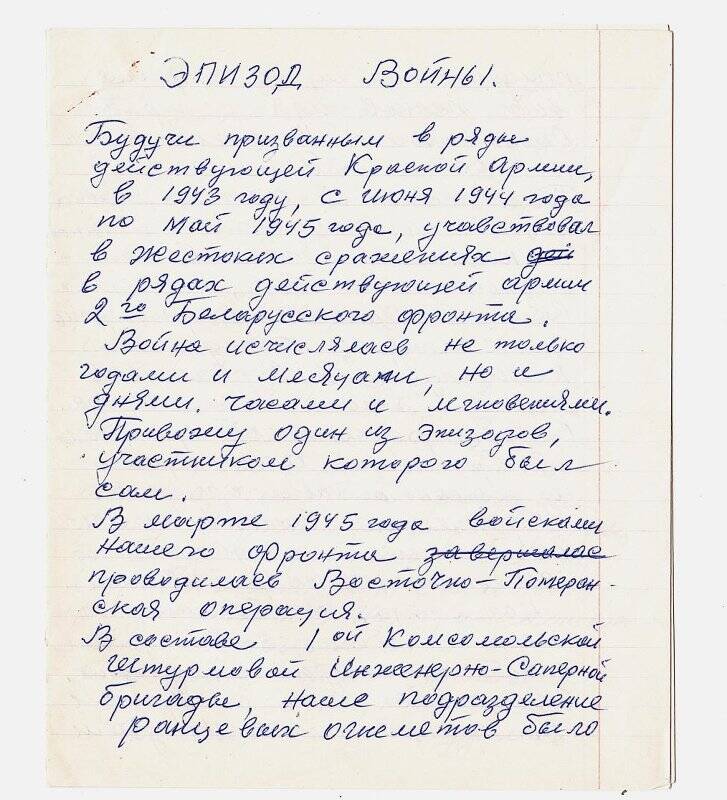 ЭПИЗОД ВОЙНЫ.
Будучи призванным в ряды
действующей Красной Армии,
в 1943 году, с июня 1944 года
по май 1945 года, учавствовал
в жестоких сражениях
в рядах действующей армии
2го Беларусского фронта.
Война исчислялась не только
годами и месяцами, но и
днями. часами и мгновениями.
Привожу один из эпизодов,
участником которого был
сам.
В марте 1945 года войсками
нашего фронта завершалас
проводилась Восточно-Померан-
ская операция.
В составе 1ой Комсомольской
штурмовой Инженерно-Саперной
бригады, наше подразделение
ранцевых огнеметов было